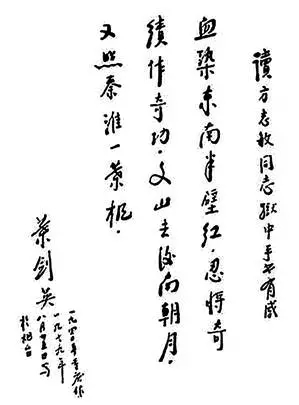 讀方志敏同志獄中手书有感
血染东南半壁紅。忍將奇
績作奇功。文山去後南朝月。
又照秦淮一葉楓。
葉劍英
一九四〇年重慶作
一九七九年
八月十五日书
於烟台